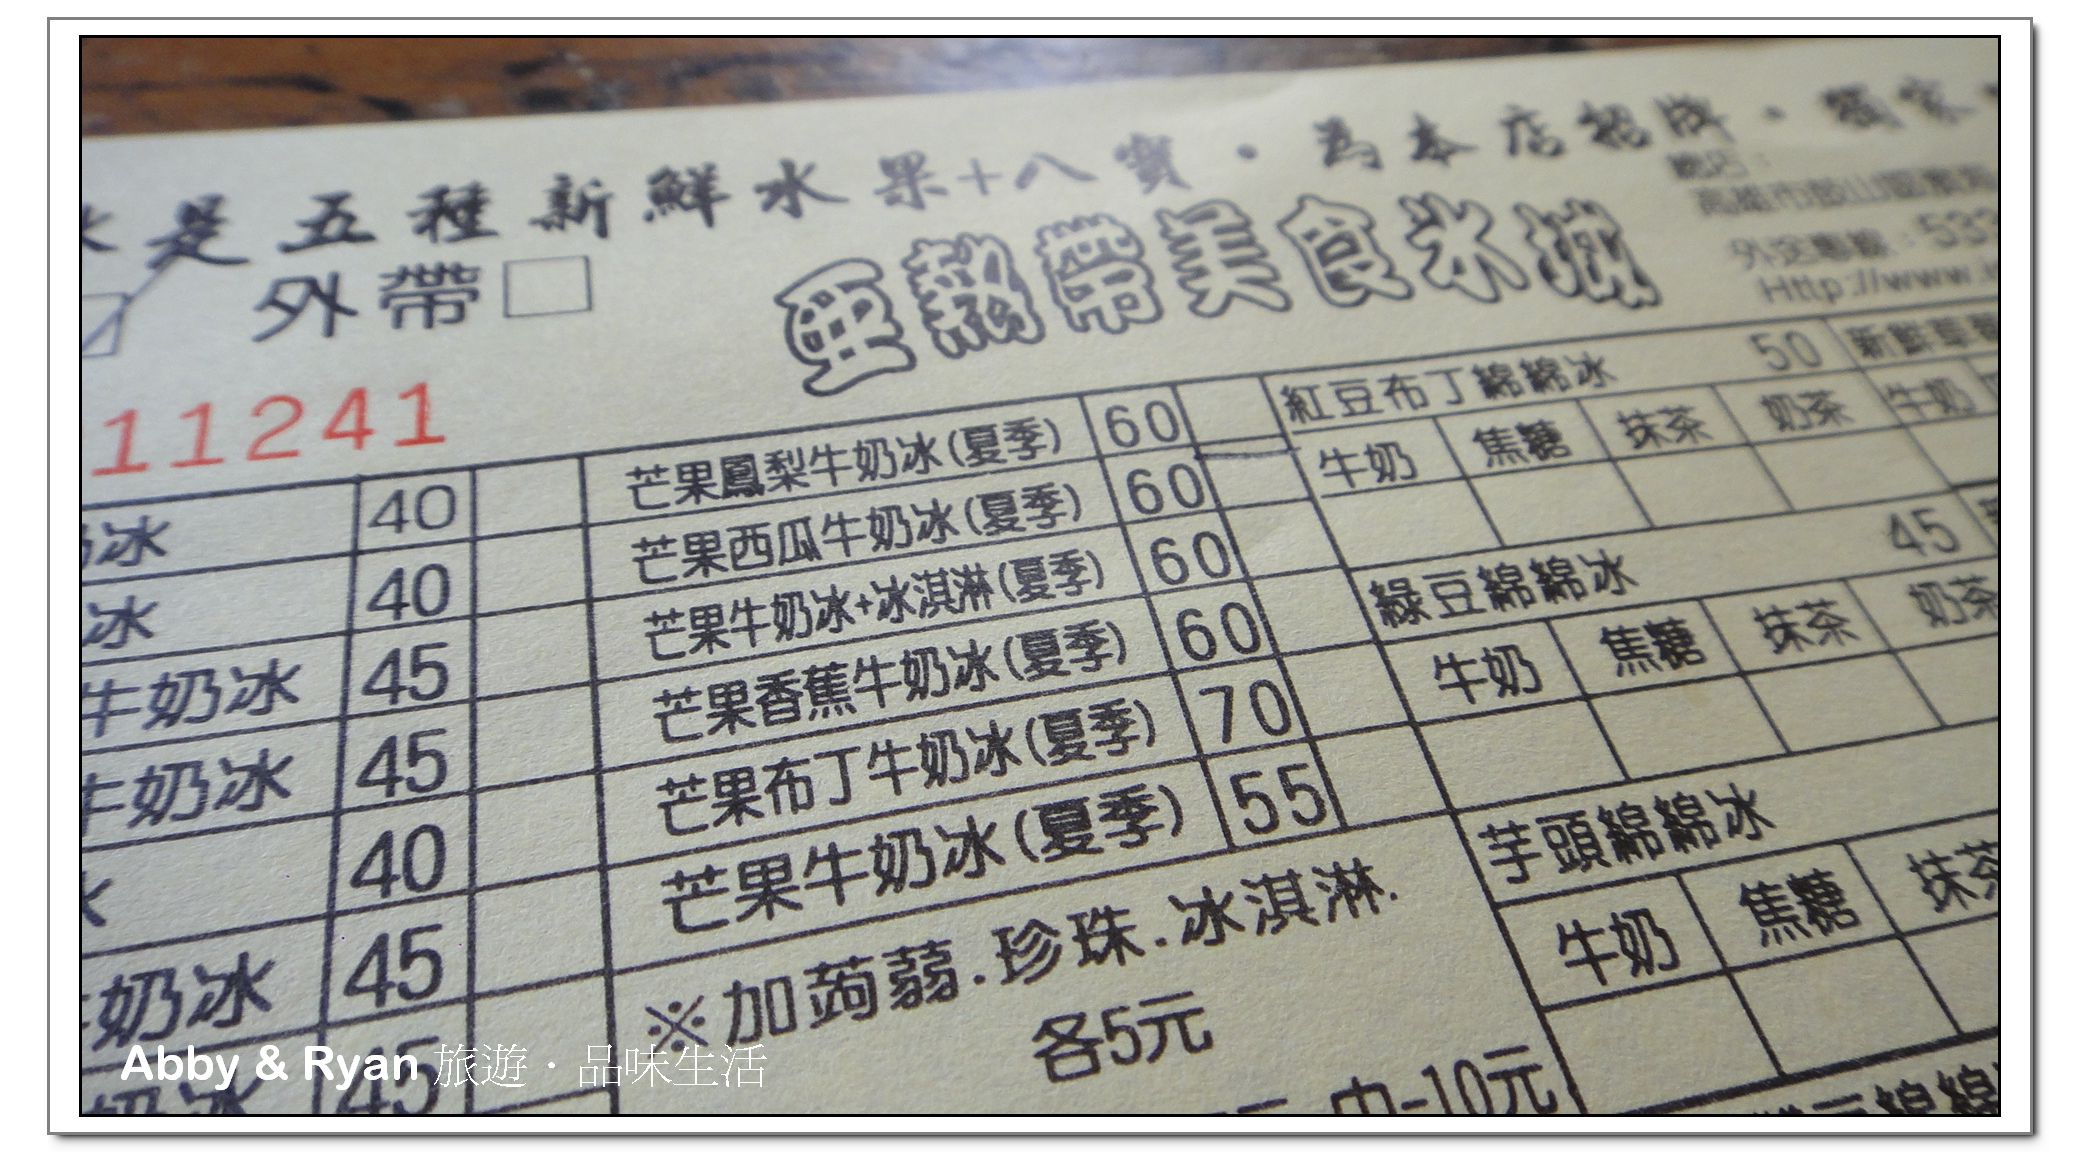 是五種新鮮水果+八寶·為本店招牌·獨家
外帶□
亞熱帶美食冰城
總店:
高雄市鼓山區
外定專線:533
Http://www.
11241
奶冰 40
冰 40
牛奶冰 45
牛奶冰 45
冰 40
牛奶冰 45
奶冰 45
芒果鳳梨牛奶冰(夏季) 60
芒果西瓜牛奶冰(夏季) 60
芒果牛奶冰+冰淇淋(夏季) 60
芒果香蕉牛奶冰(夏季) 60
芒果布丁牛奶冰(夏季) 70
芒果牛奶冰(夏季) 55
※加蒟蒻.珍珠.冰淇淋.
各5元
中-10元
紅豆布丁綿綿冰 50
牛奶 焦糖 抹茶 奶茶
綠豆綿綿冰 45
牛奶 焦糖 抹茶 奶茶
芋頭綿綿冰
牛奶 焦糖 抹茶
豆綿綿
新鮮草莓
牛奶
Abby & Ryan 旅遊·品味生活